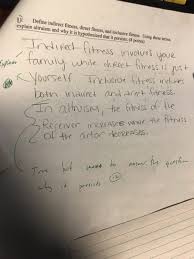 Define indirect fitness, direct fitness, and inclusive fitness. Using these terms,
explain altruism and why it is hypothesized that it persists (4 points)
Indirect fitness involves your
family while direct fitness is just
yourself. Inclusive fitness includes
both indirect and direct fitness.
In altruism, the fitness of the
Receiver increases while the fitness
of the actor decreases.
True but need to answer the question
why it persists